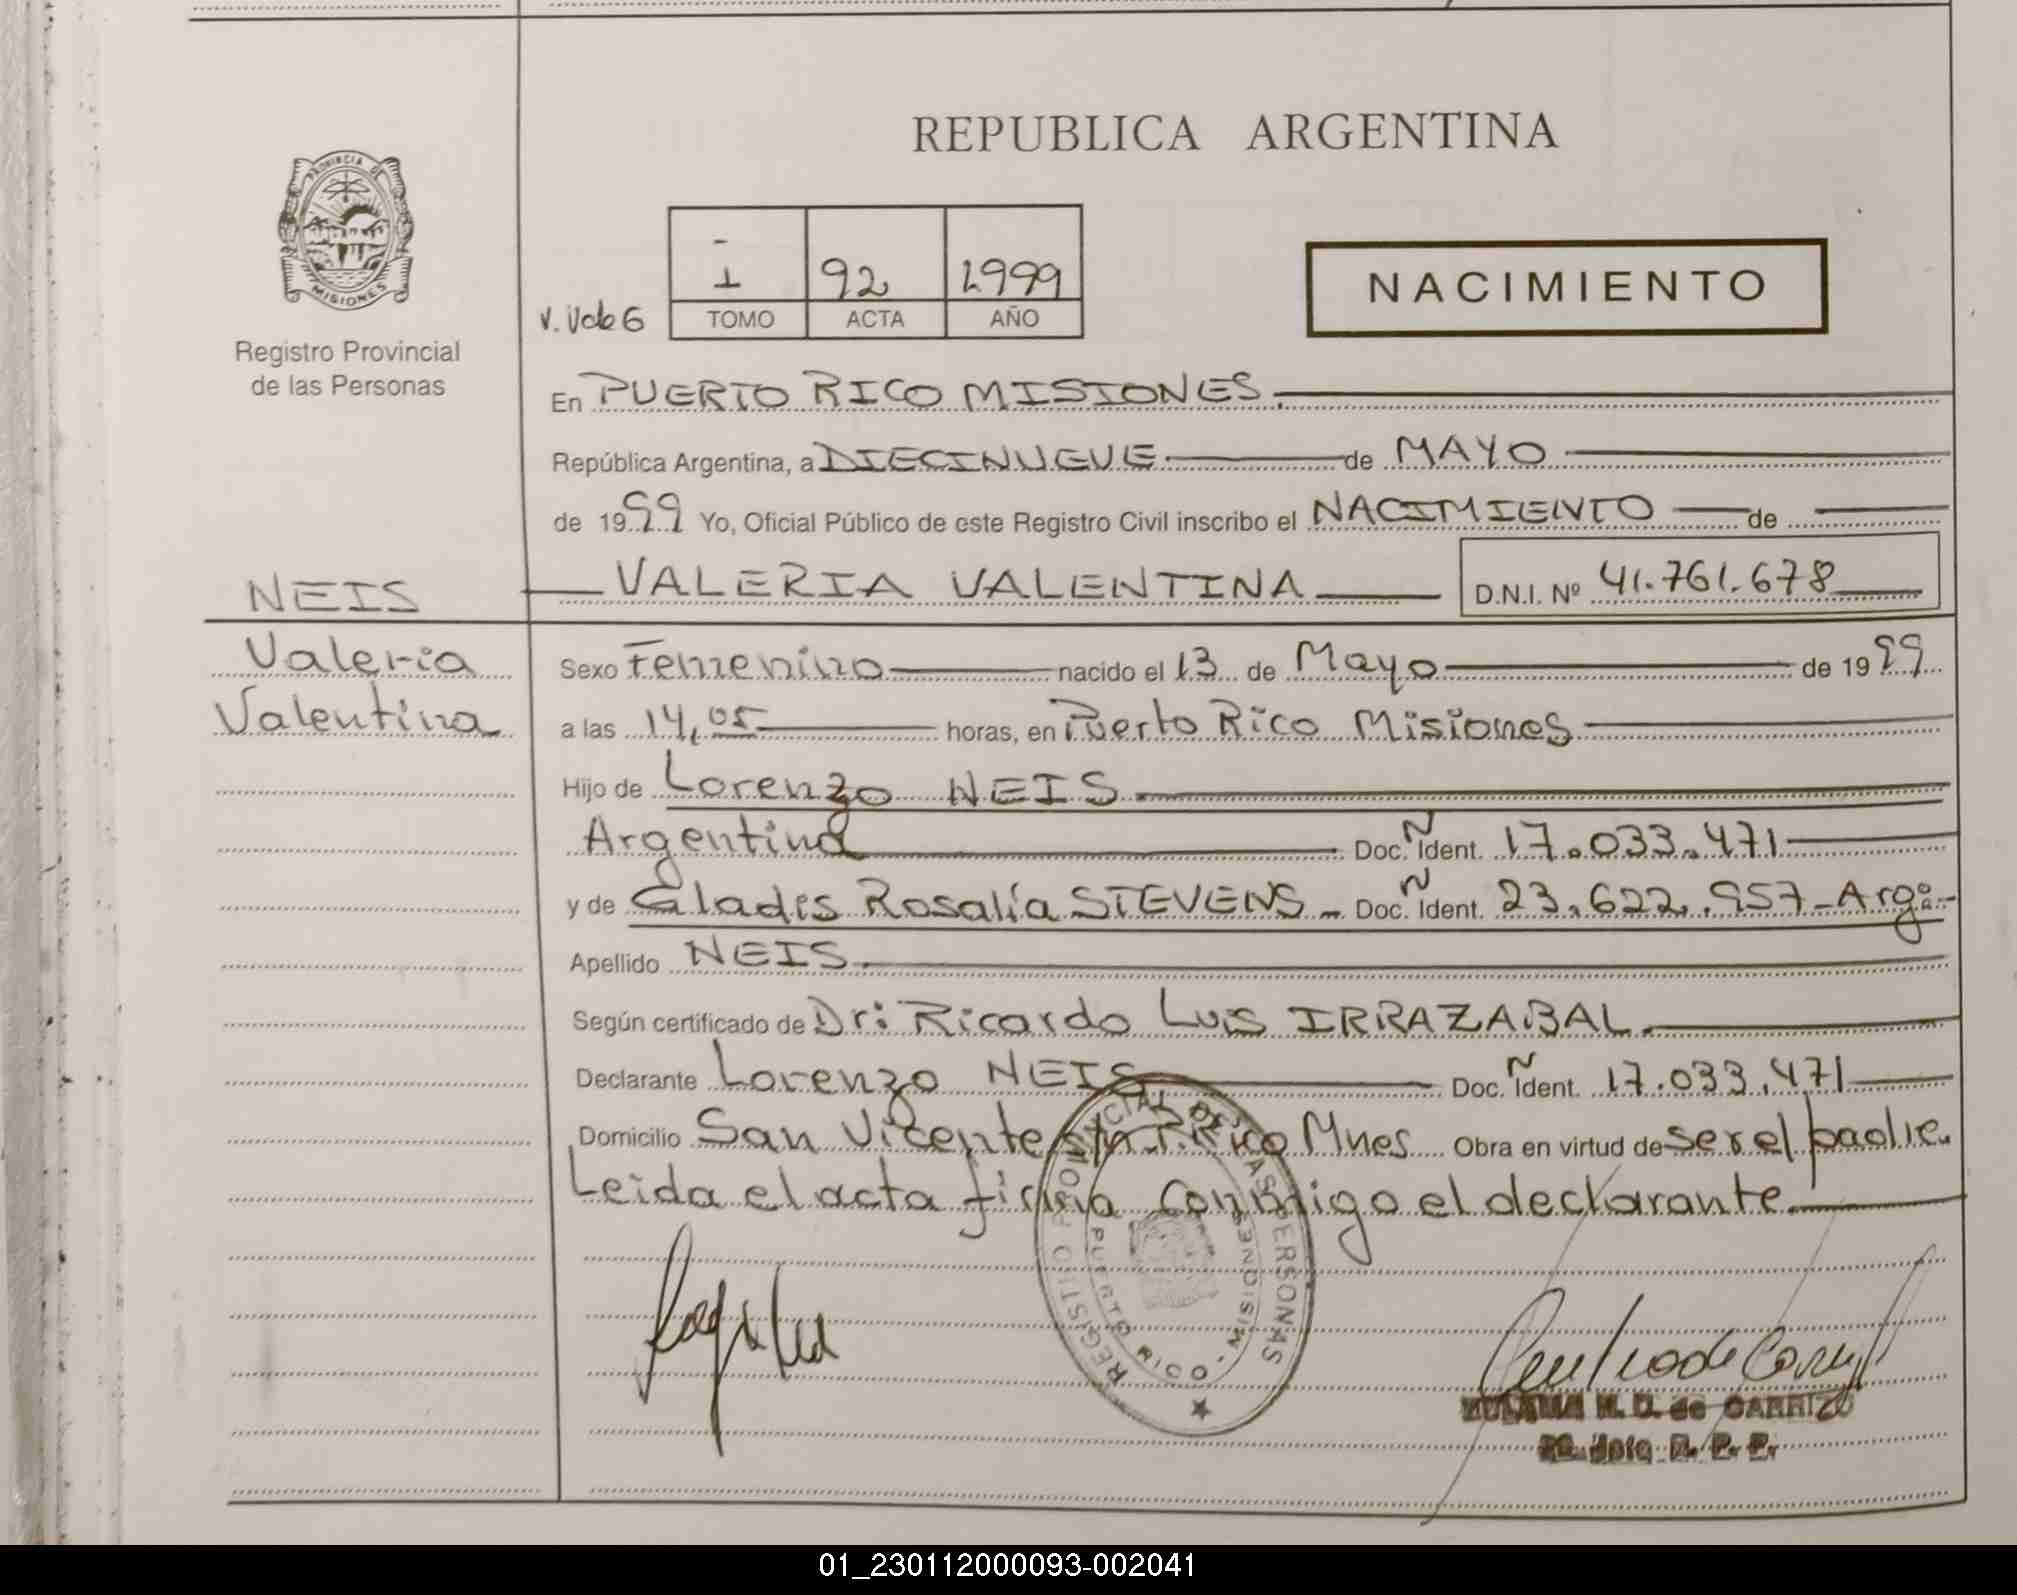 REPUBLICA ARGENTINA
PROVINCIA DE
MISIONES
Registro Provincial
de las Personas
I 92 1999
TOMO ACTA AÑO
NACIMIENTO
En PUERTO RICO MISIONES.
República Argentina, a DIECINUEVE de MAYO
de 1999 Yo, Oficial Público de este Registro Civil inscribo el NACIMIENTO de
VALERIA VALENTINA D.N.I. Nº 41.761.678
NEIS
Valeria
Valentina
Sexo Femenino nacido el 13 de Mayo de 1999
a las 14,05 horas, en Puerto Rico Misiones
Hijo de Lorenzo NEIS
Argentina Doc. Ident. 17.033.471
y de Gladis Rosalía STEVENS - Doc. Ident. 23.622.957 - Arg.
Apellido NEIS.
Según certificado de Dr: Ricardo Luis IRRAZABAL.
Declarante Lorenzo NEIS Doc. Ident. 17.033.471
Domicilio San Vicente s/n. P. Rico Mnes Obra en virtud de ser el padre.
Leida el acta firma conmigo el declarante.
REGISTRO PROVINCIAL DE LAS PERSONAS
PUERTO RICO - MISIONES
M. D. de CARRIZO
R. P. P.
01_230112000093-002041